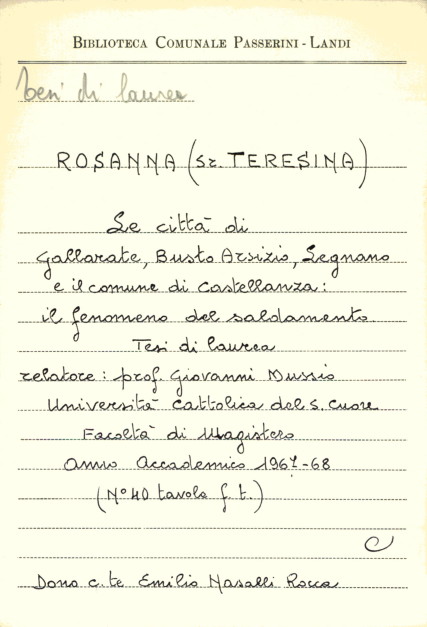 BIBLIOTECA COMUNALE PASSERINI - LANDI
Tesi di laurea
ROSANNA (Sr. TERESINA)
Le città di
Gallarate, Busto Arsizio, Legnano
e il comune di Castellanza:
il fenomeno del saldamento
Tesi di laurea
relatore: prof. Giovanni Mussio
Università Cattolica del S. Cuore
Facoltà di Magistero
Anno Accademico 1967-68
(N° 40 tavole f. t.)
C
Dono c.te Emilio Nasalli Rocca